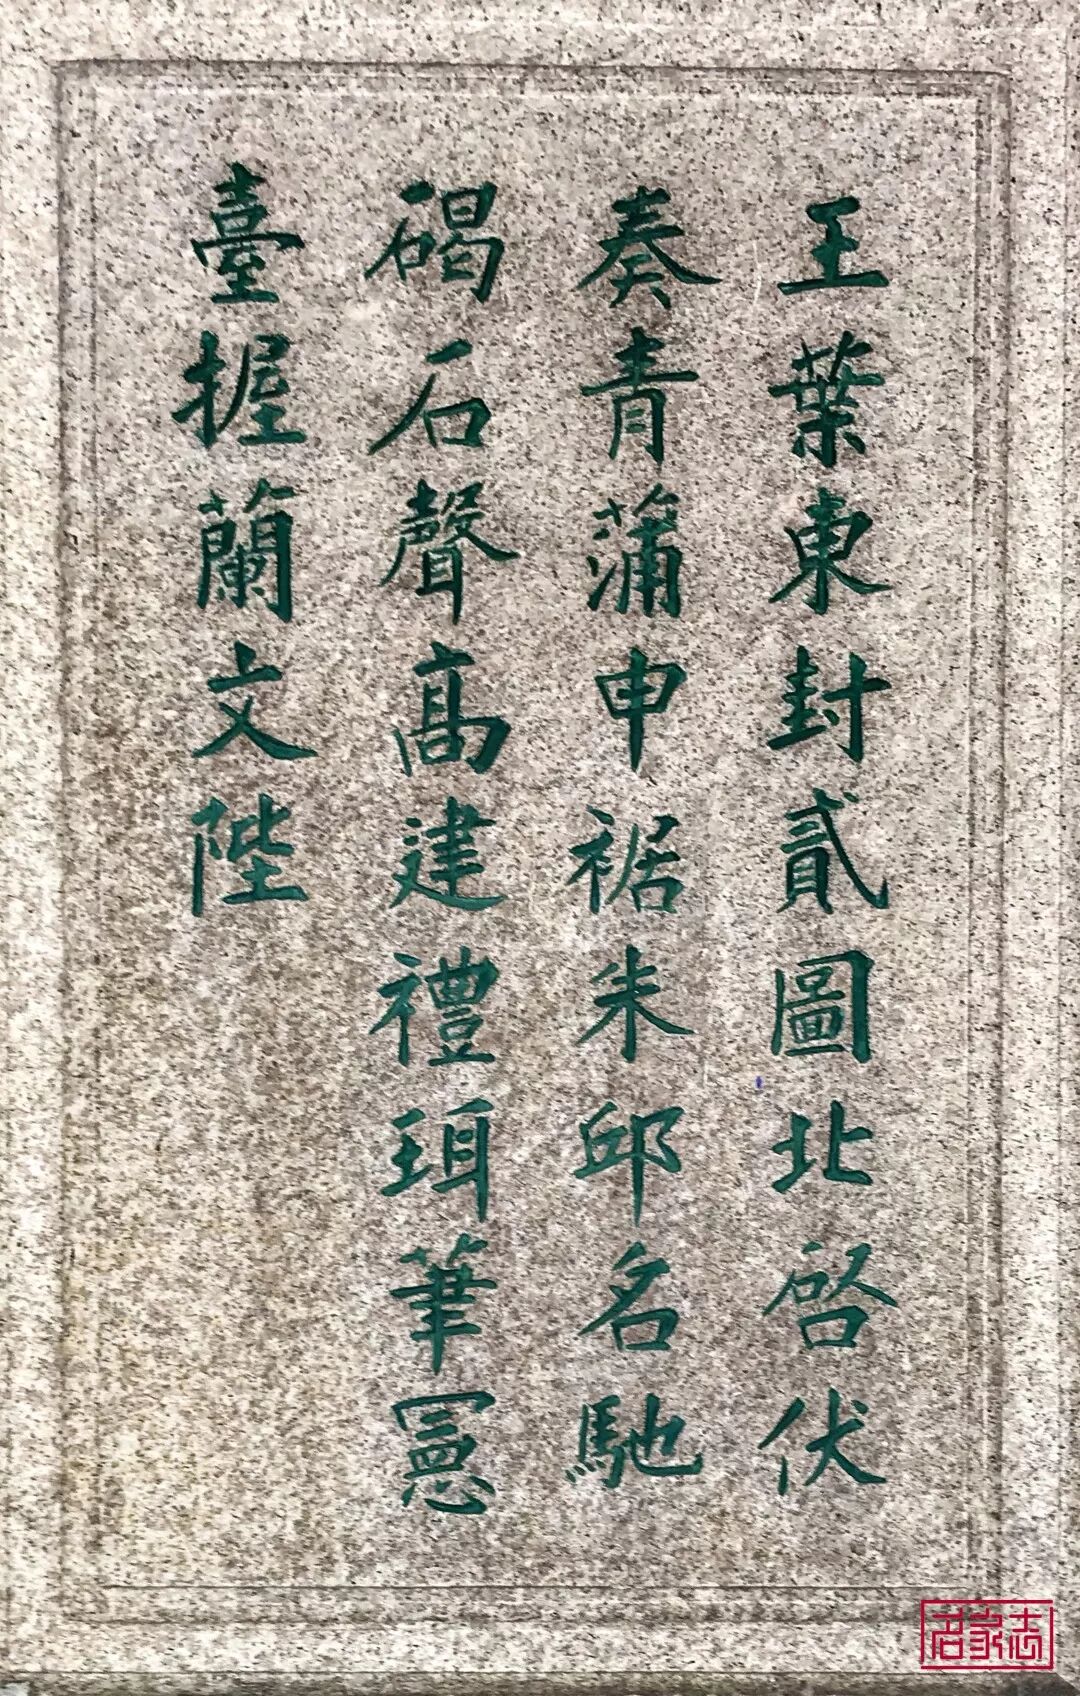 王葉東封貳圖北啓伏
奏青蒲申裾朱邱名馳
碣石聲高建禮珥筆憲
臺握蘭文陛